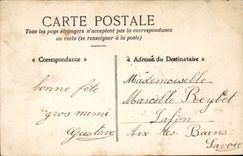 CARTE POSTALE
Tous les pays étrangers n'acceptent pas la correspondance
au recto (se renseigner à la poste)
« Correspondance »
« Adresse du Destinataire »
Mademoiselle
bonne fête
Marcelle Reybet
gros mimi
Lafin
Gustave
Aix les Bains
Savoie